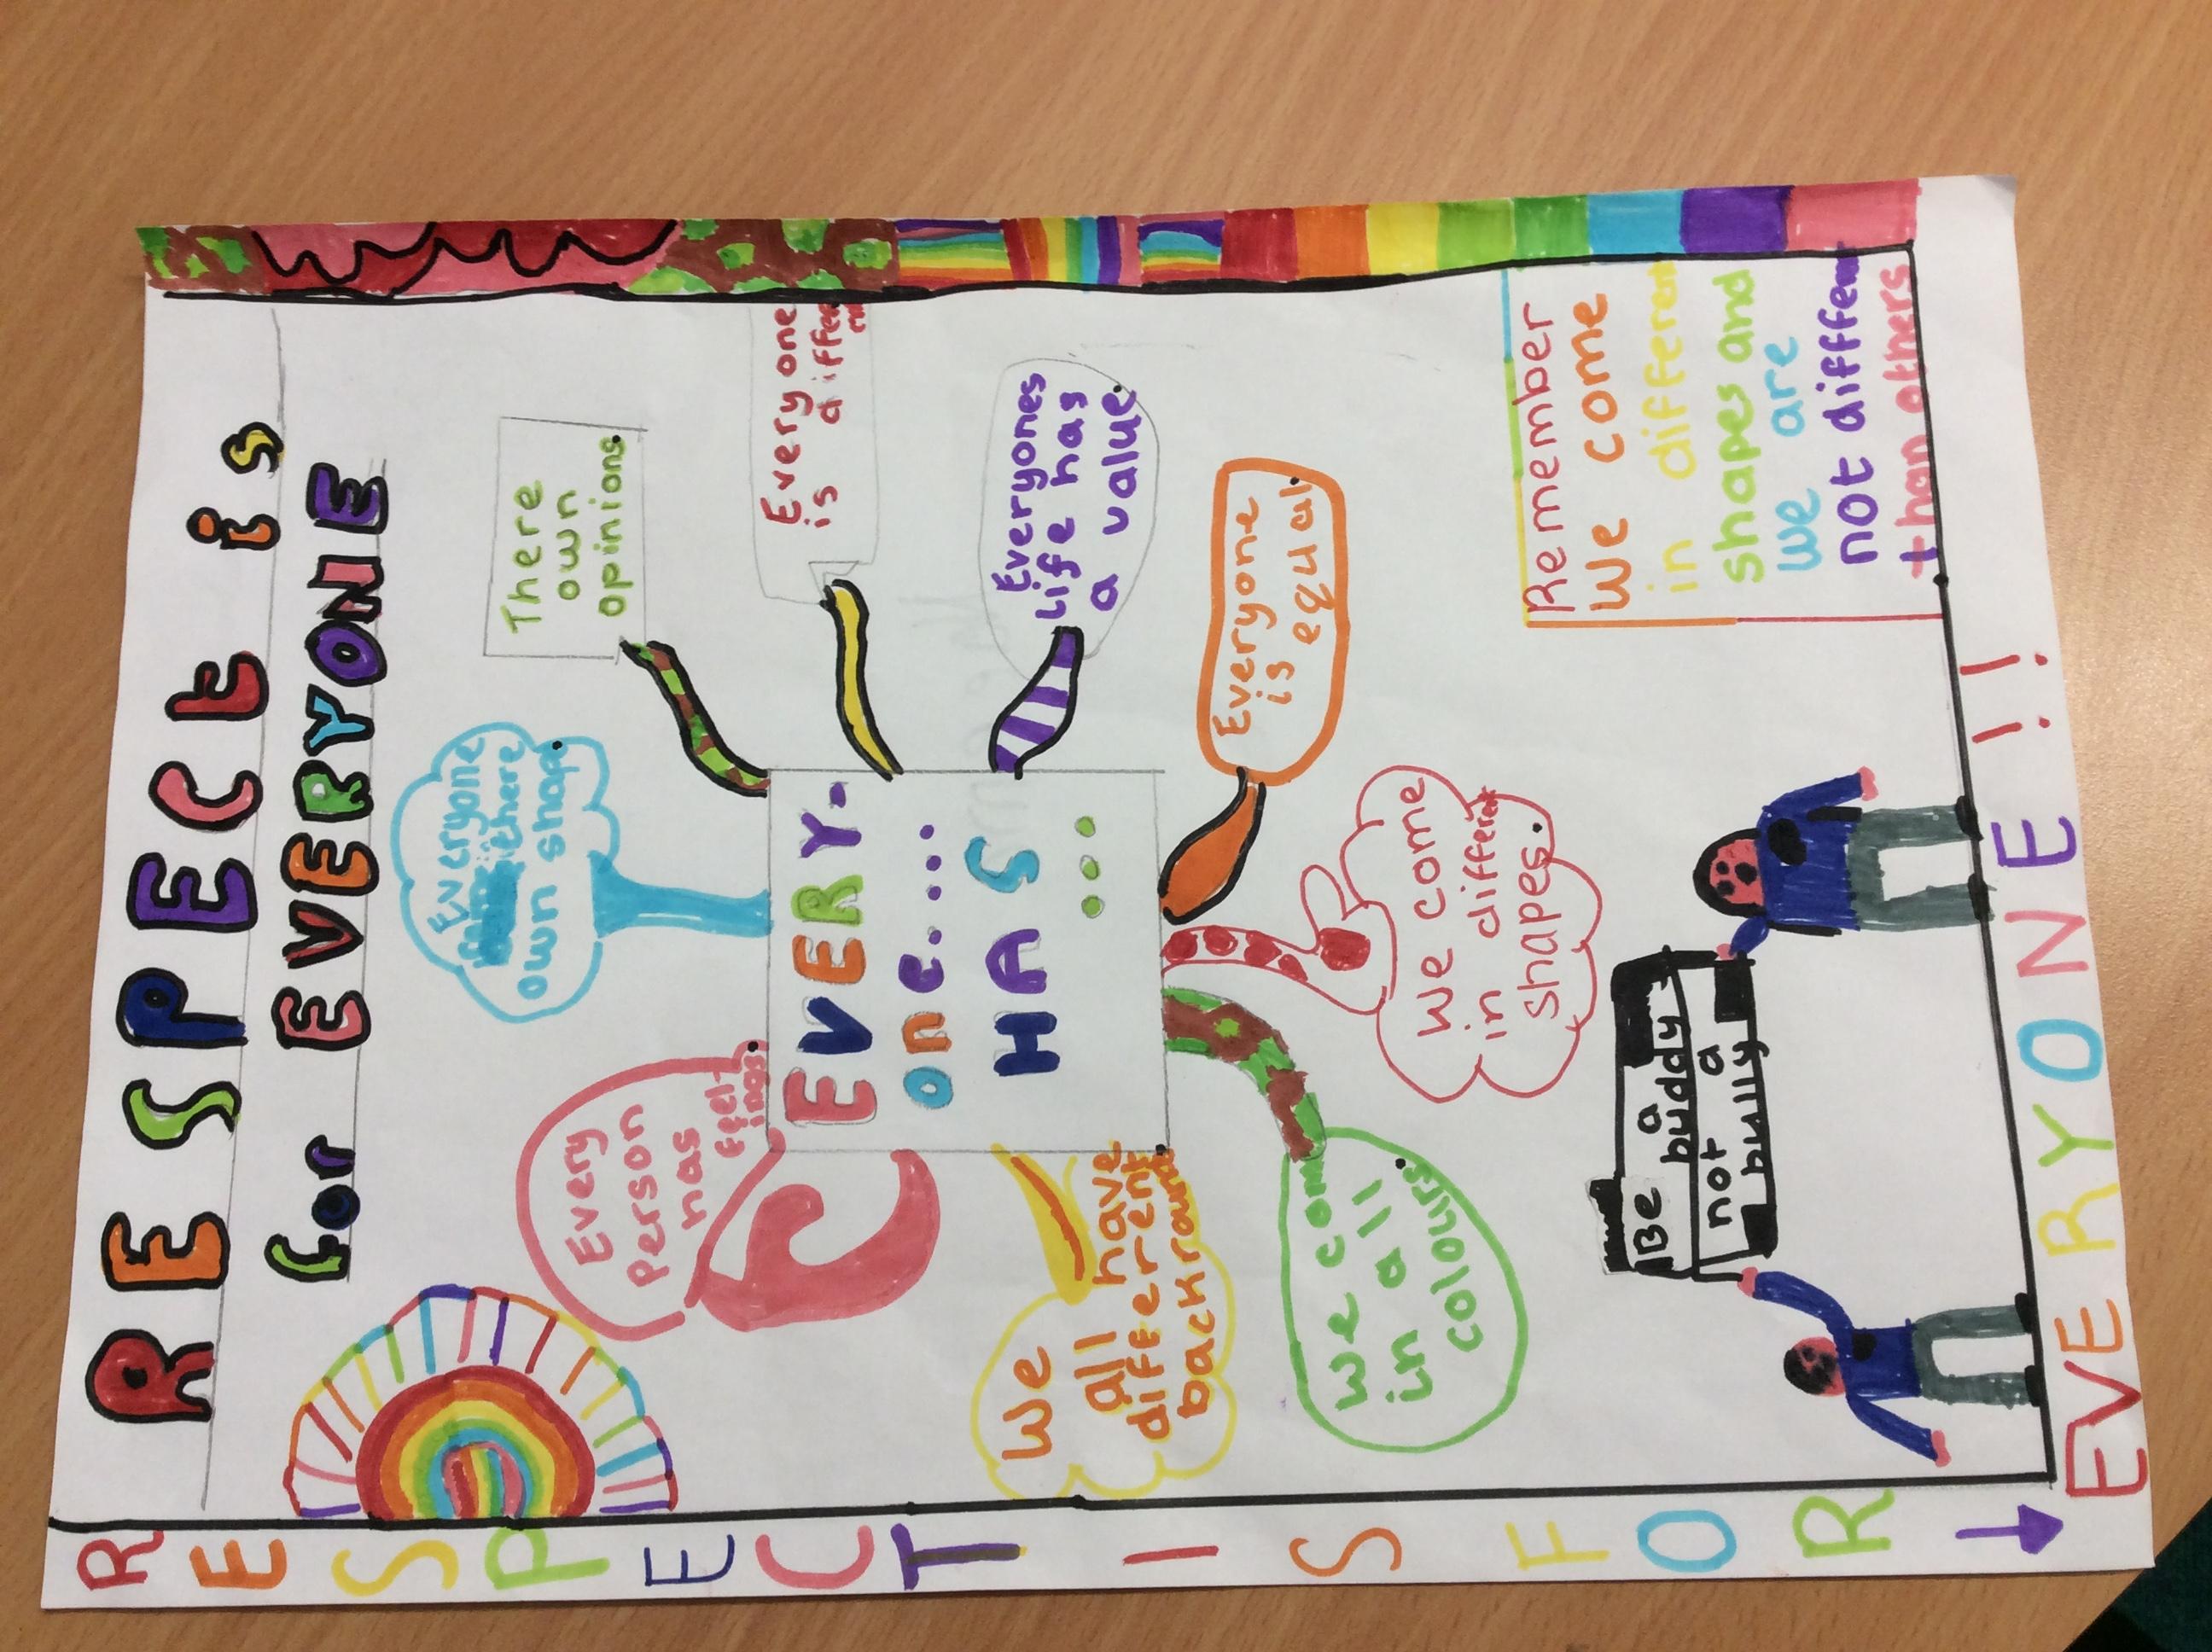 RESPECt is
for EVERYONE
Everyone
there
own shape.
There
own
opinions.
Every
Person
has
feel-
ings.
EVERY-
one....
HAS
...
Everyone
is different
Everyones
Life has
a value.
Everyone
is
equal.
We
all have
different
backround
We come
in all
colours.
We come
in different
shapes.
Remember
We come
in different
shapes and
we are
not different
than others
Be a
buddy
not a
bully
RESPECT IS FOR
EVERYONE!!